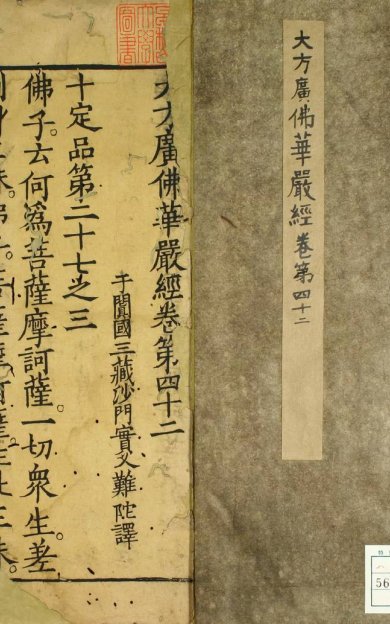 大方廣佛華嚴經卷第四十二
大方廣佛華嚴經卷第四十二
于闐國三藏沙門實叉難陀譯
十定品第二十七之三
佛子。云何爲菩薩摩訶薩一切衆生差
56